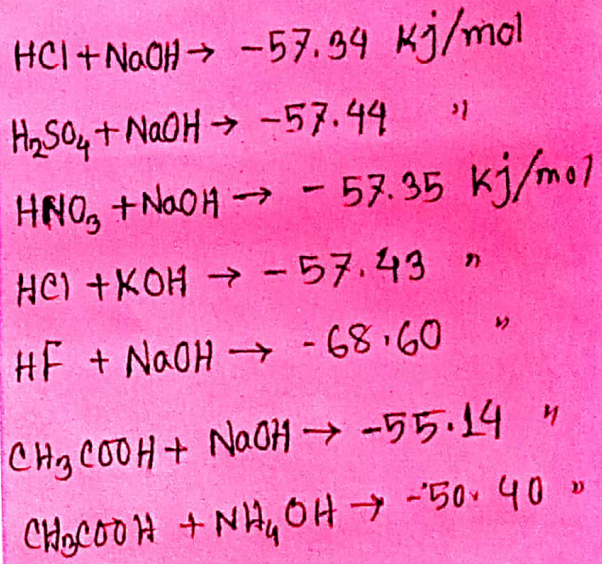 HCl + NaOH → -57.34 Kj/mol
H₂SO₄ + NaOH → -57.44 "
HNO₃ + NaOH → - 57.35 Kj/mol
HCl + KOH → -57.43 "
HF + NaOH → -68.60 "
CH₃COOH + NaOH → -55.14 "
CH₃COOH + NH₄OH → -50.40 "